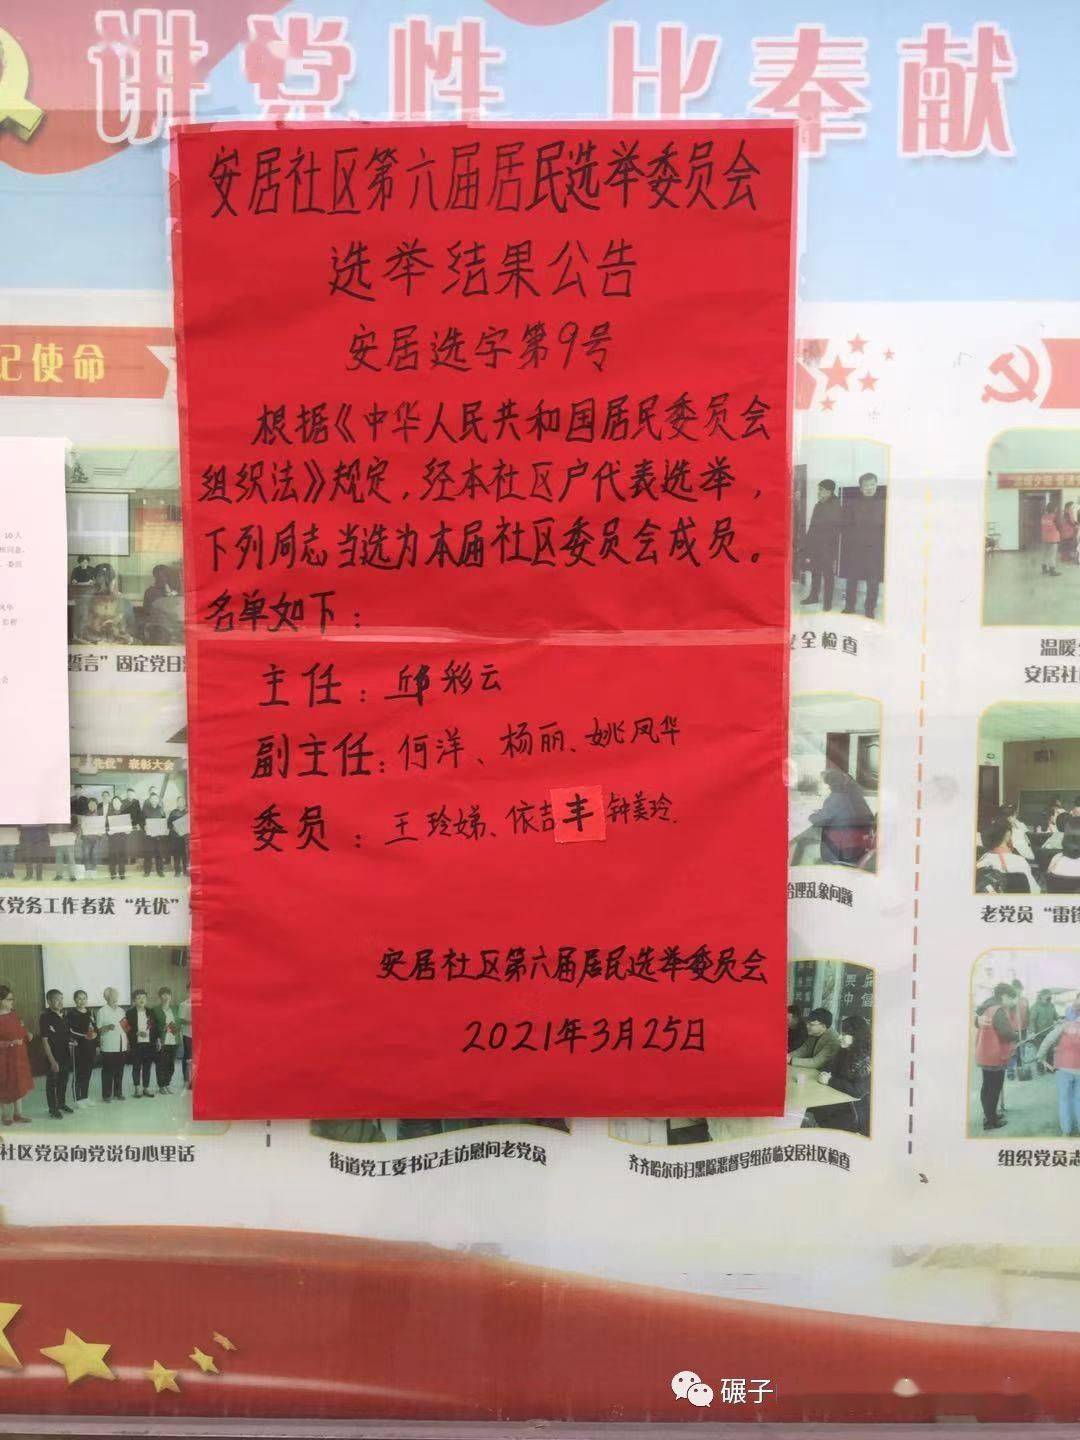 讲党性 比奉献
安居社区第六届居民选举委员会
选举结果公告
安居选字第9号
根据《中华人民共和国居民委员会
组织法》规定，经本社区户代表选举，
下列同志当选为本届社区委员会成员。
名单如下：
主任：邱彩云
副主任：何洋、杨丽、姚凤华
委员：王玲娣、依吉丰 钟美玲.
安居社区第六届居民选举委员会
2021年3月25日
记使命
10人
誓言”固定党日
全检查
温暖
安居社
“先优”表彰大会
区党务工作者获“先优”
治理乱象问题
老党员“雷锋
社区党员向党说句心里话
街道党工委书记走访慰问老党员
齐齐哈尔市扫黑除恶督导组莅临安居社区检查
组织党员志
碾子